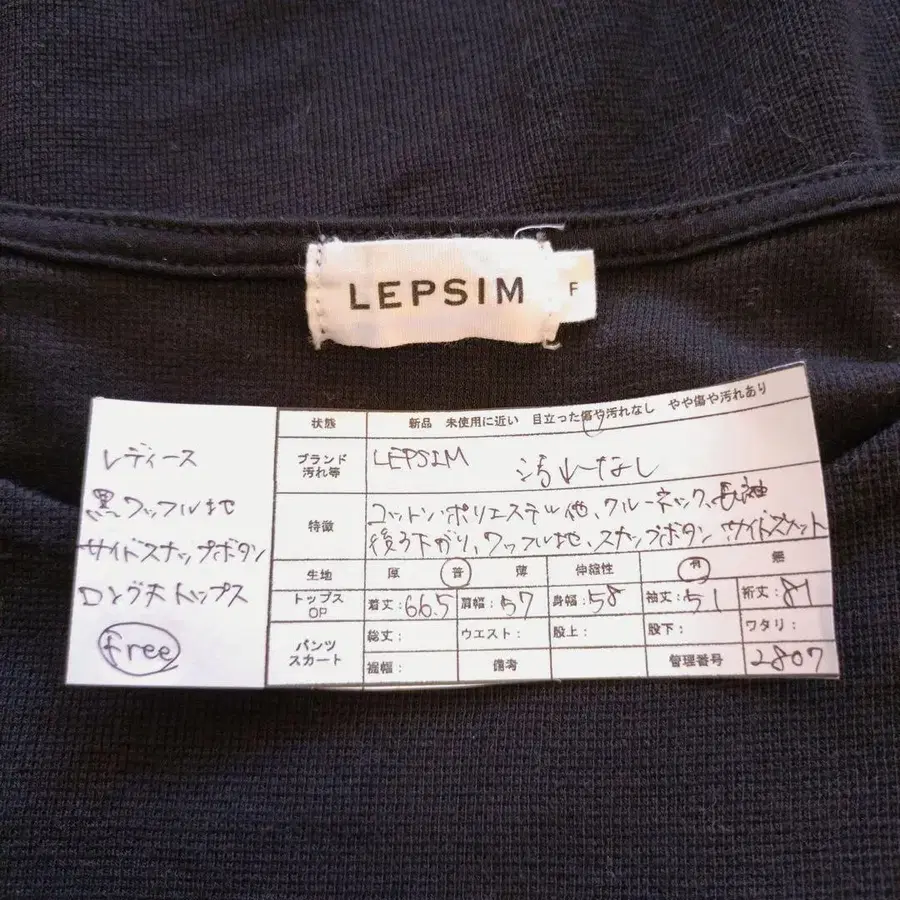 LEPSIM
F
レディース
黒ワッフル地
サイドスナップボタン
ロング丈トップス
free
状態 新品 未使用に近い 目立った傷や汚れなし やや傷や汚れあり
ブランド 汚れ等 LEPSIM 汚れなし
特徴 コットン、ポリエステル他、クルーネック、長袖
後ろ下がり、ワッフル地、スナップボタン サイドスリット
生地 厚 普 薄 伸縮性 有 無
トップス OP 着丈:66.5 肩幅:57 身幅:58 袖丈:51 裄丈:81
パンツ スカート 総丈: ウエスト: 股上: 股下: ワタリ:
裾幅: 備考 管理番号 2807